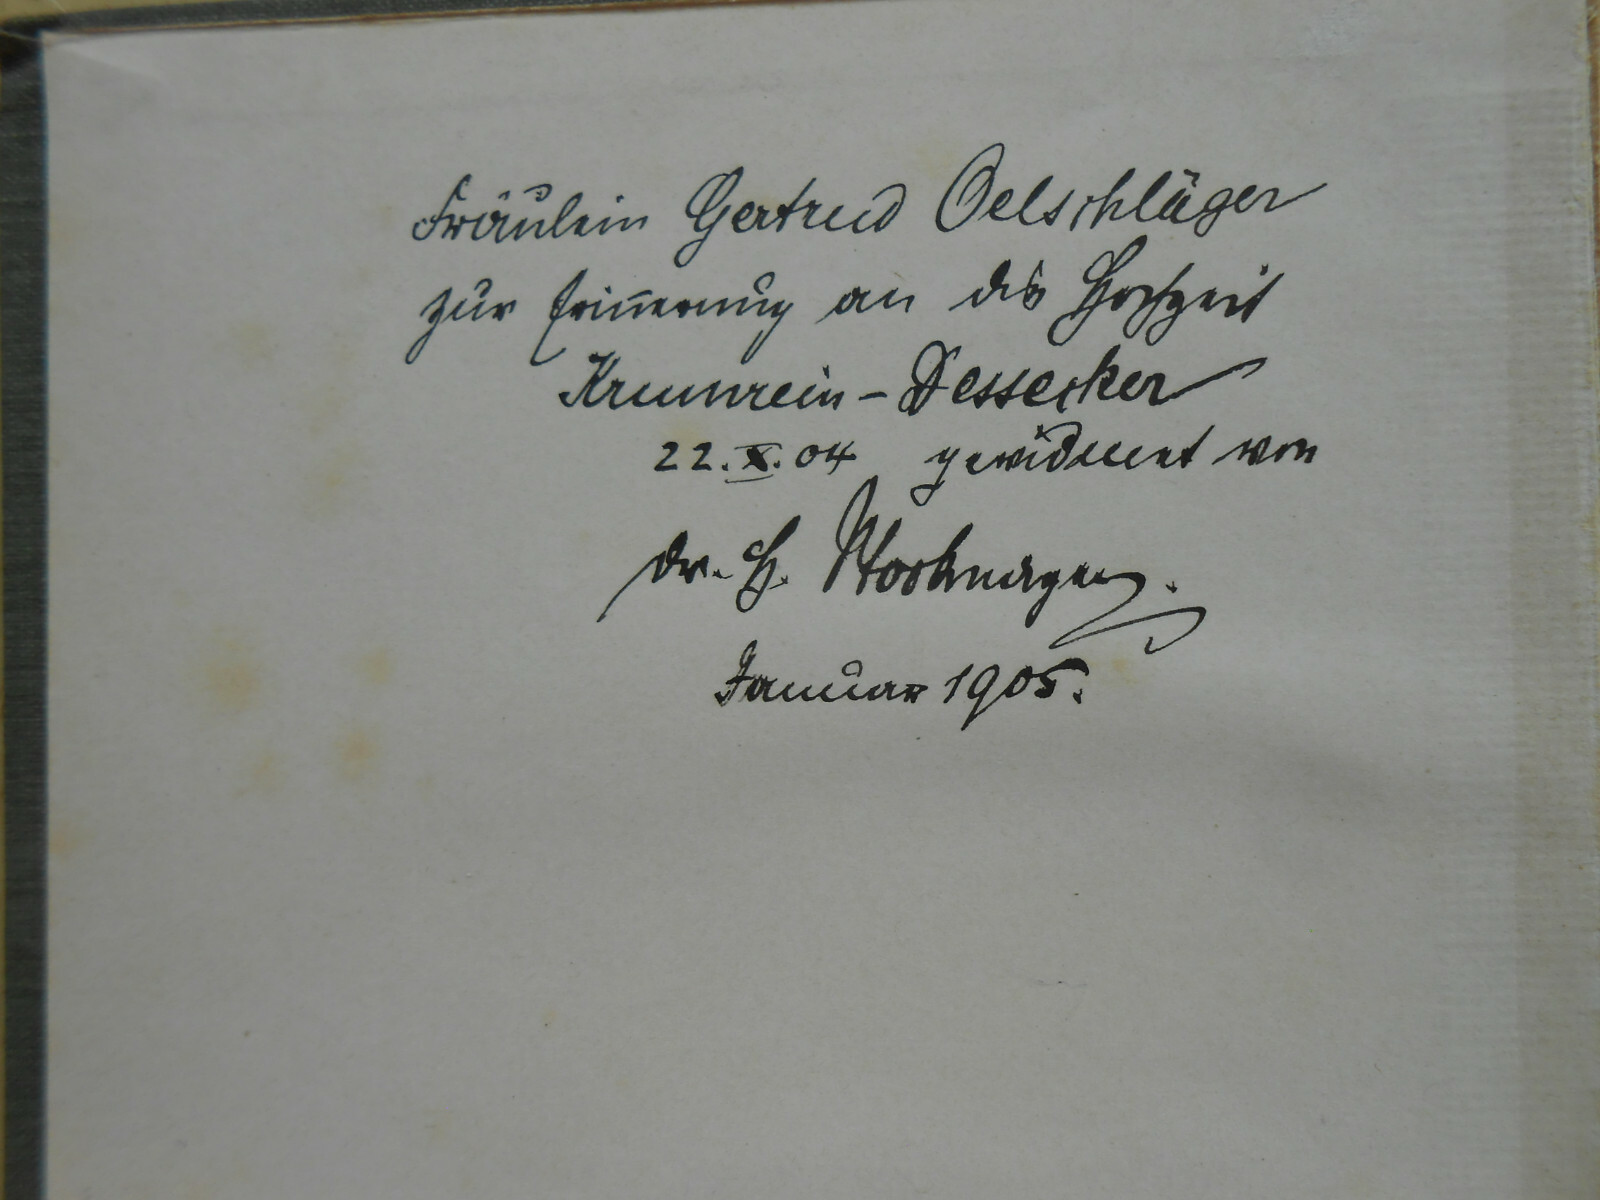 Fräulein Gertrud Oelschläger
zur Erinnerung an die Hochzeit
Krumrein – Dessecker
22.X.04 gewidmet von
Dr. H.
Januar 1905.